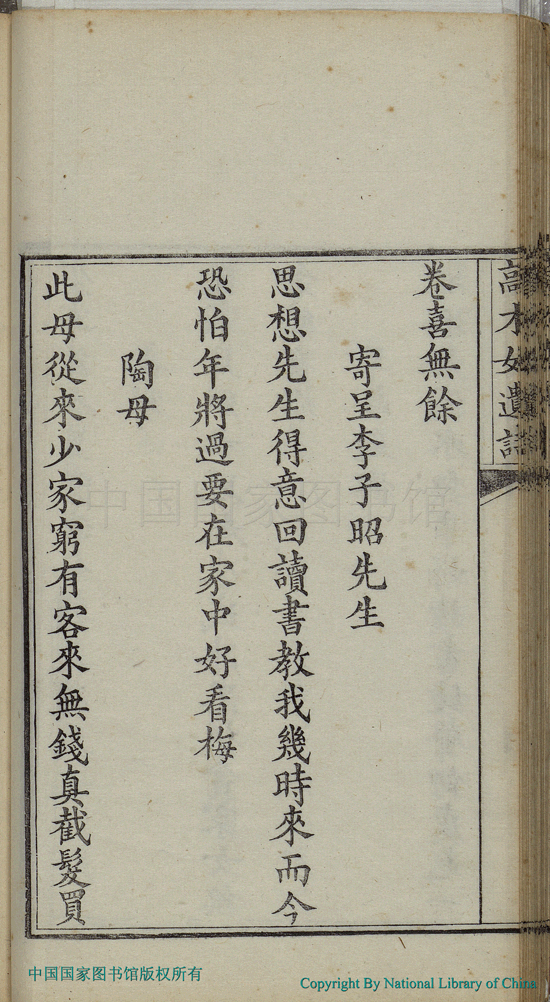 高才女遺詩
卷喜無餘
寄呈李子昭先生
思想先生得意回讀書教我幾時來而今
恐怕年將過要在家中好看梅
陶母
此母從來少家窮有客來無錢真截髮買
中国国家图书馆
中国国家图书馆版权所有
Copyright By National Library of China